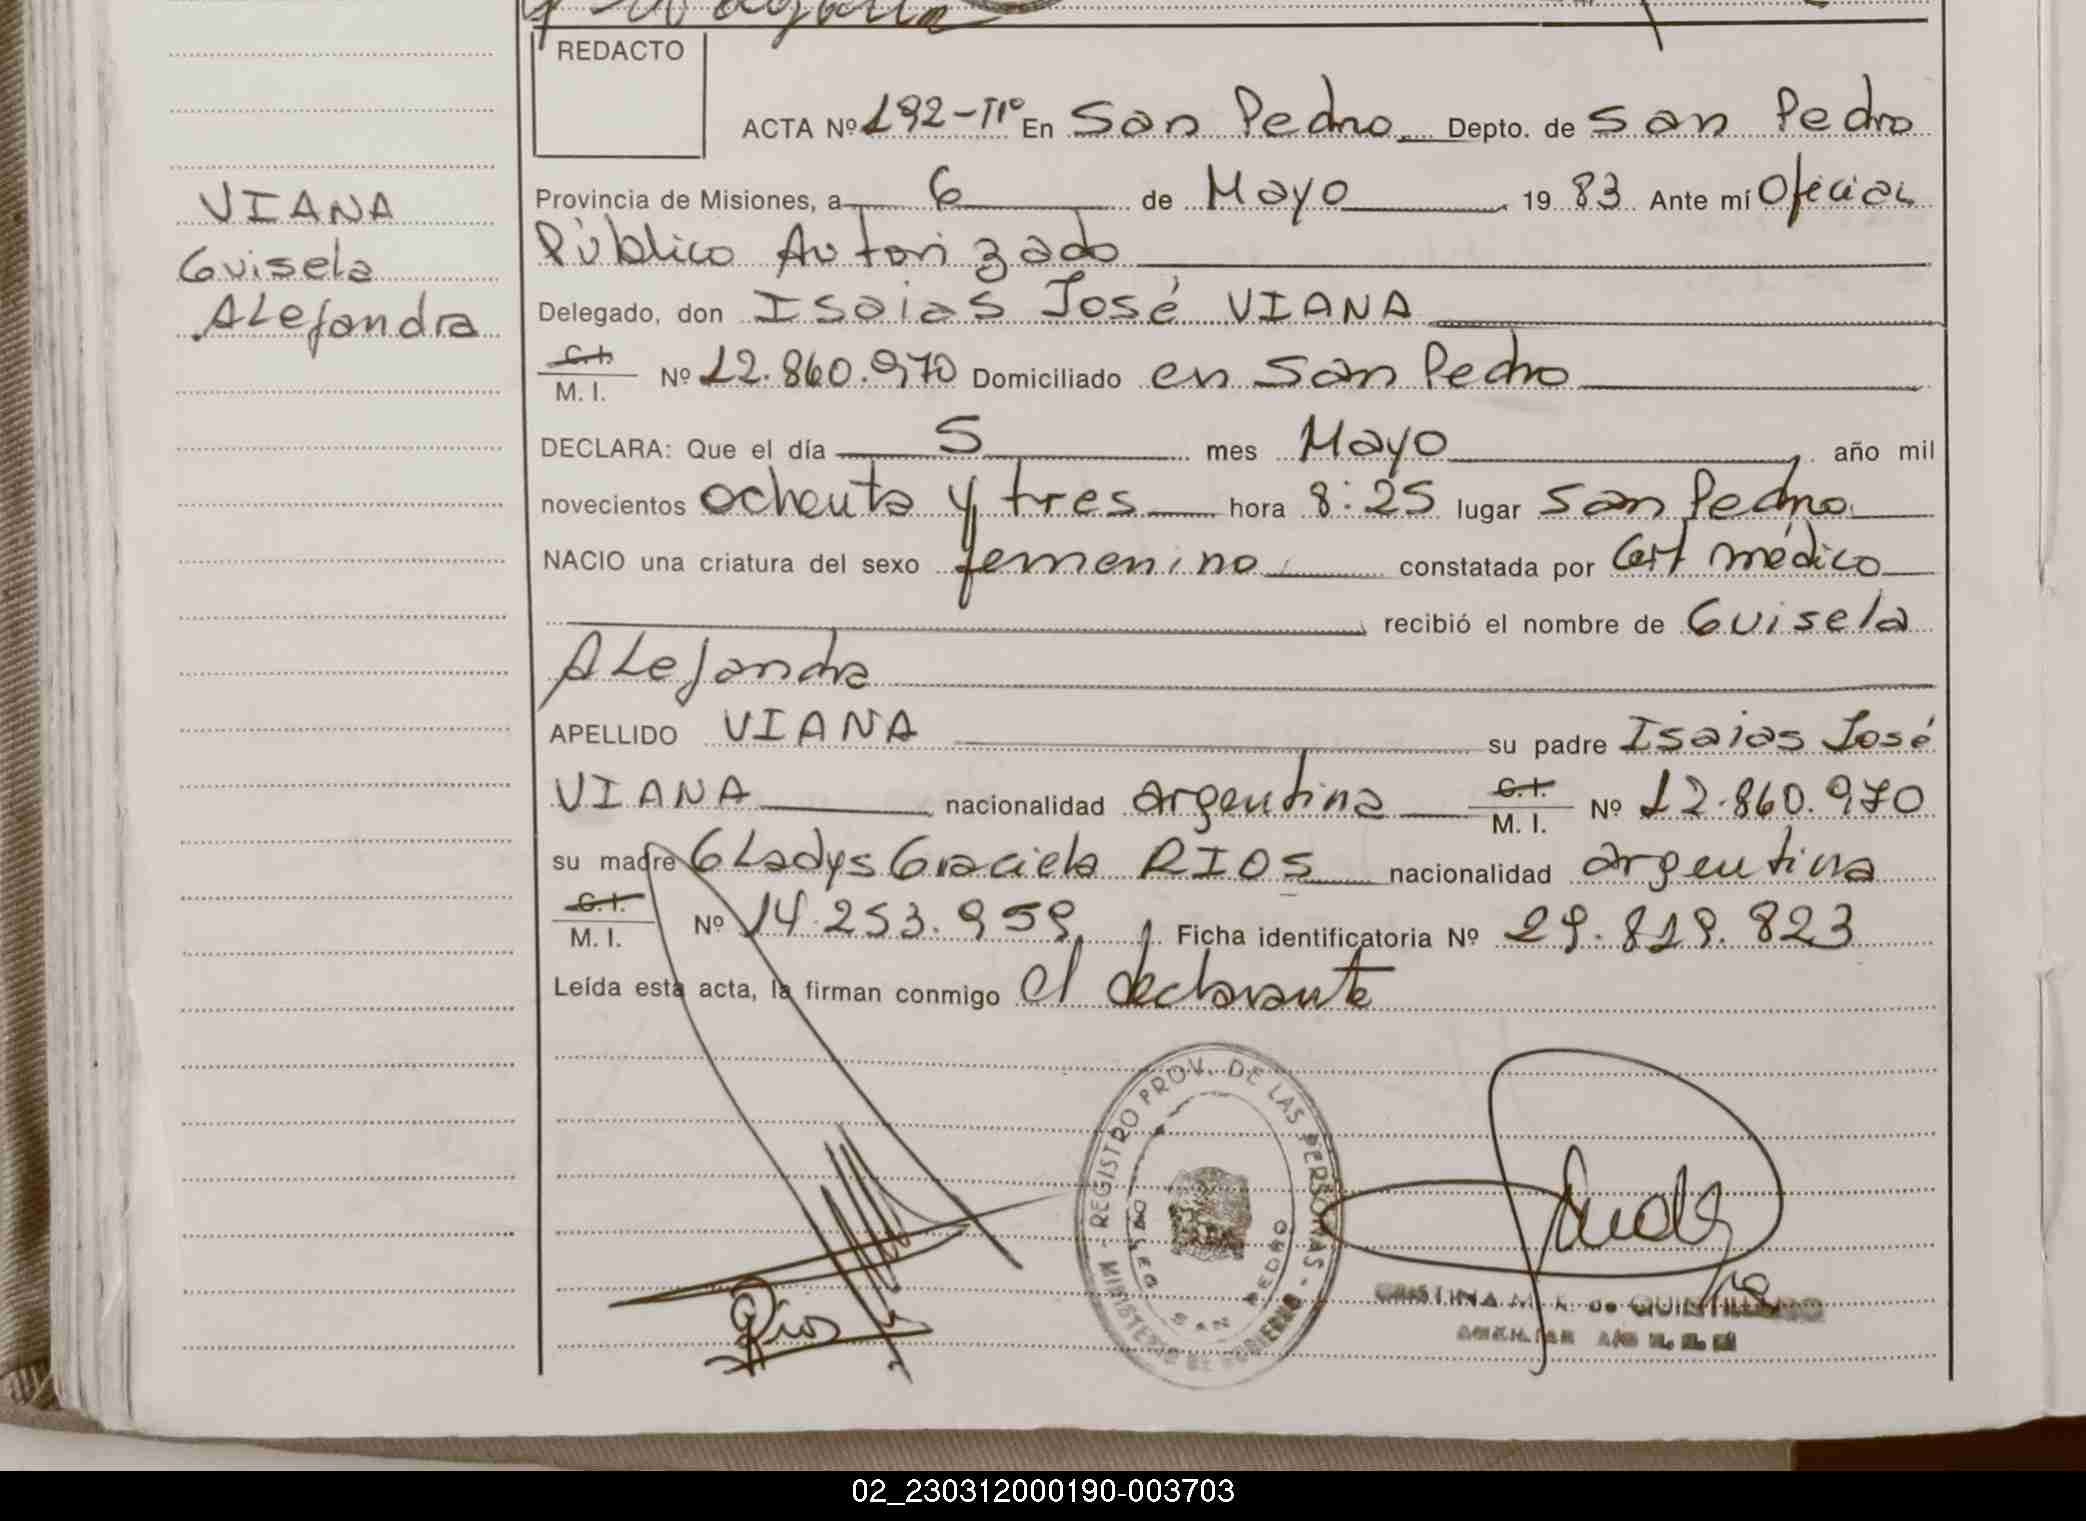 REDACTO
ACTA Nº 192-Tº En San Pedro Depto. de San Pedro
Provincia de Misiones, a 6 de Mayo 19 83 Ante mí Oficial
Público Autorizado
Delegado, don Isaias José VIANA
C.I. M. I. Nº 12.860.970 Domiciliado en San Pedro
DECLARA: Que el día 5 mes Mayo año mil
novecientos ochenta y tres hora 8:25 lugar San Pedro
NACIO una criatura del sexo femenino constatada por Cert médico
recibió el nombre de Guisela
Alejandra
APELLIDO VIANA su padre Isaias José
VIANA nacionalidad argentina C.I. M. I. Nº 12.860.970
su madre Gladys Graciela RIOS nacionalidad argentina
C.I. M. I. Nº 14.253.959 Ficha identificatoria Nº 29.819.823
Leída esta acta, la firman conmigo el declarante
VIANA
Guisela
Alejandra
REGISTRO PROV. DE LAS PERSONAS - MINISTERIO DE GOBIERNO -
SAN PEDRO
Rios
CRISTINA M. de QUINTILLERO
02_230312000190-003703